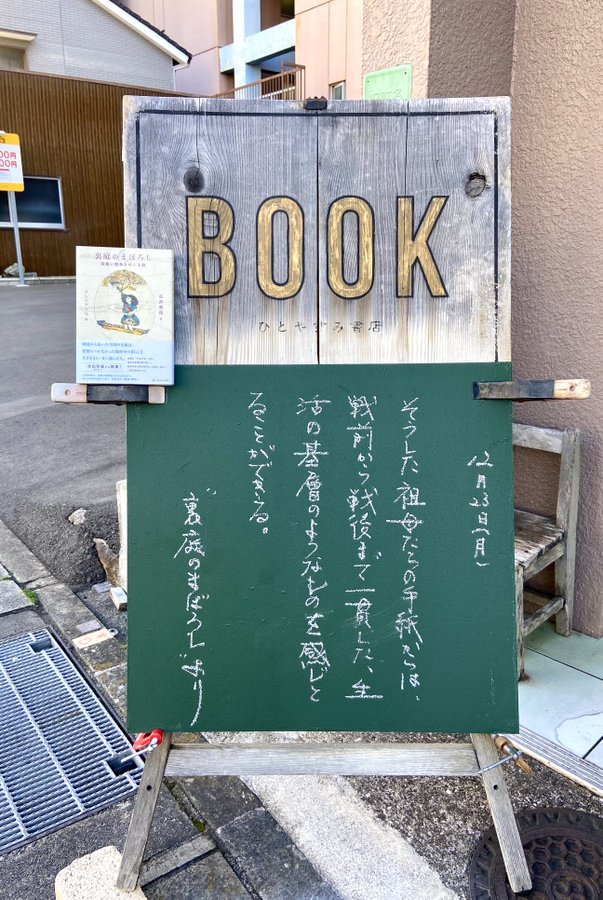 BOOK
ひとやすみ書店
裏庭のまぼろし
家族と戦争をめぐる旅
石井美保
12月23日(月)
そうした祖母たちの手紙からは、
戦前から戦後まで一貫した、生
活の基層のようなものを感じと
ることができる。
“裏庭のまぼろし”より